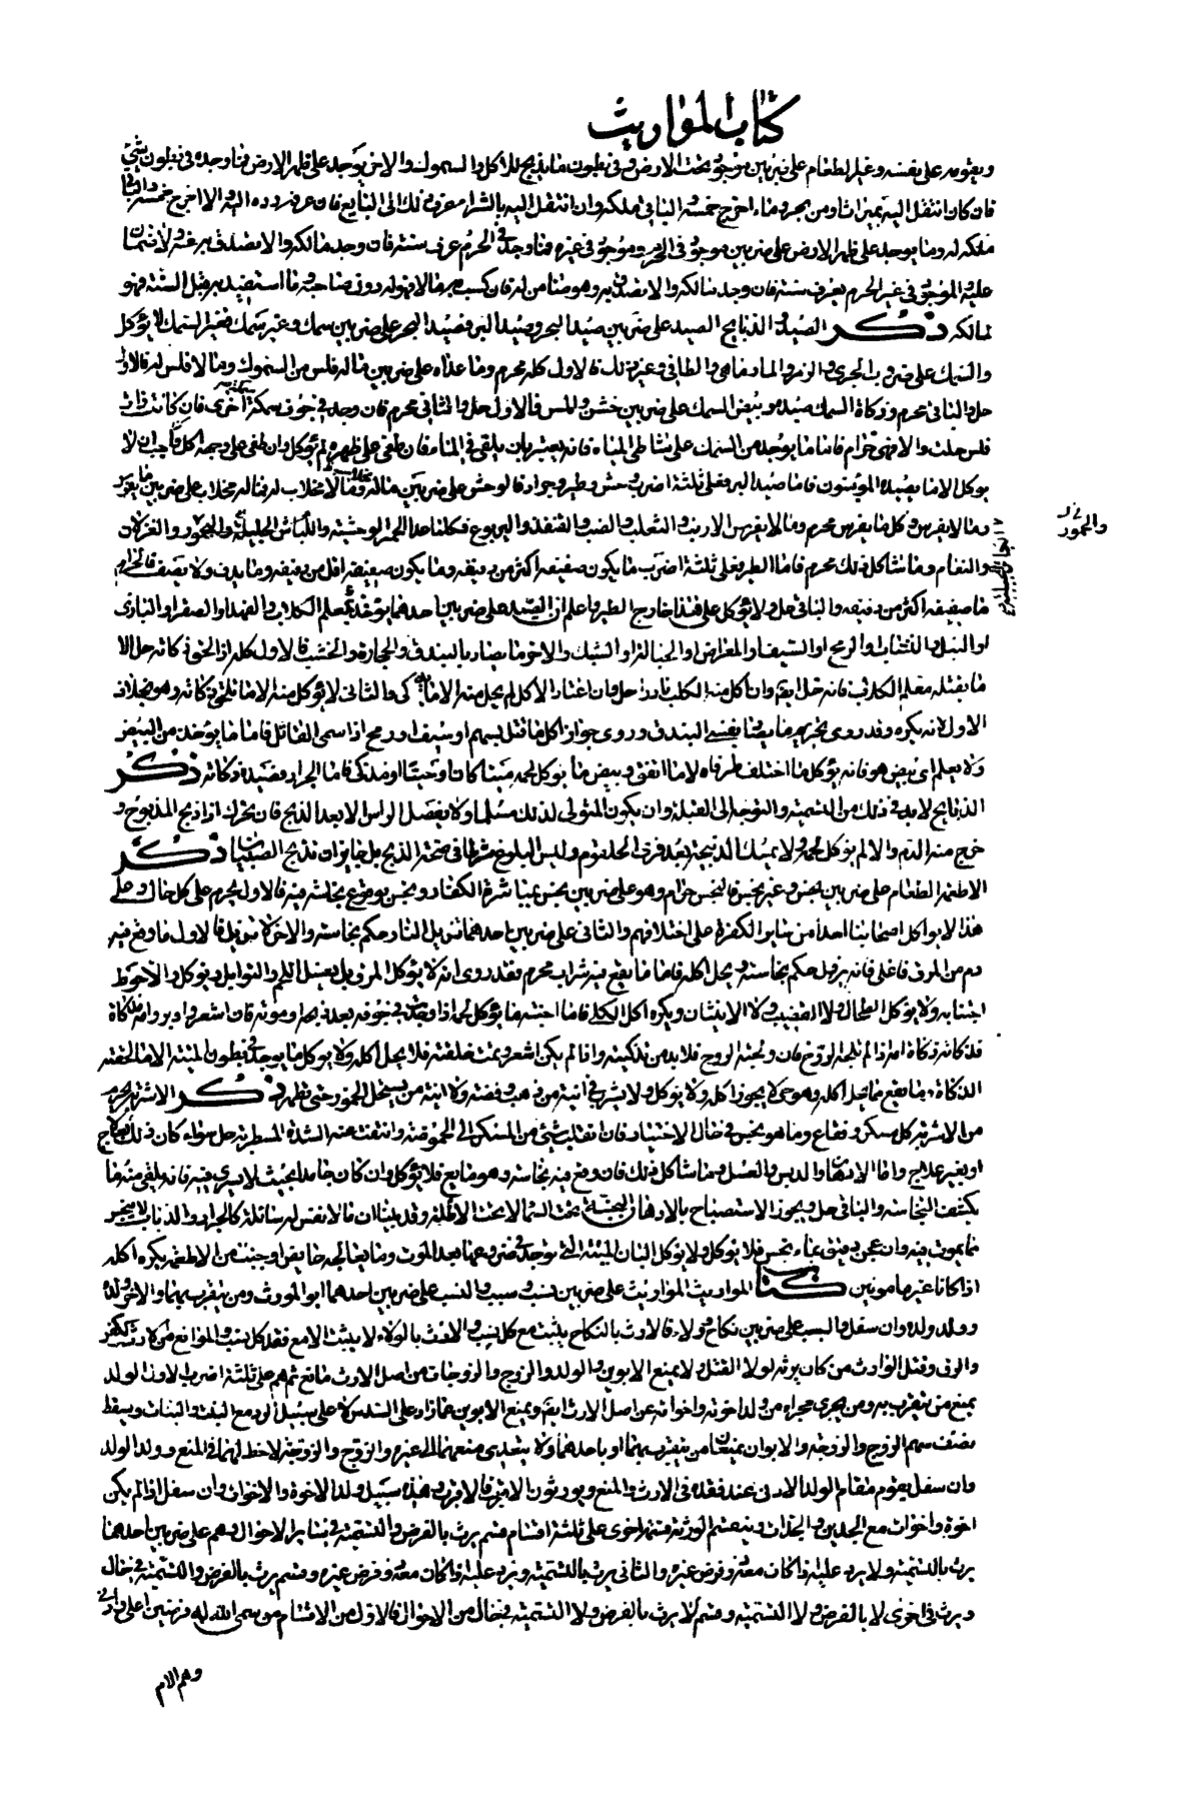 كتاب المواريث
ويقومه على نفسه وغير الطعام على ضربين موجود تحت الارض وفي بطون ما يذبح للاكل والسموك والاخر يوجد على ظهر الارض فما وجد في بطون شيء
فان كان انتقل اليه بميراث او من بحر وماء اخرج خمسه والباقي ملكه وان انتقل اليه بالشراء عرف ذلك الى البايع فان عرفه رده اليه والا اخرج خمسه والباقي
ملكه له وما يوجد على ظهر الارض على ضربين موجود في الحرم وموجود في غيره فما وجد في الحرم عرف سنة فان وجد مالكه والا تصدق به عنه ولا ضمان
عليه والموجود في غير الحرم يعرف سنة فان وجد مالكه والا تصدق به وهو ضامن له فان كسب به مالا فهو له دون صاحبه وما استفيد به قبل السنة فهو
لمالكه ذكر الصيد والذبايح الصيد على ضربين صيد البحر وصيد البر فصيد البحر على ضربين سمك وغير سمك فغير السمك لا يؤكل
والسمك على ضروب الجري والزمر والمارماهي والطافي وغير ذلك فالاول كله محرم وما عداه على ضربين ماله فلس من السموك وما لا فلس له فالاول
حل والثاني محرم وذكاة السمك صيده وبيض السمك على ضربين خشن واملس فالاول حل والثاني محرم فان وجد في جوف سمكة اخرى فان كانت ذات
فلس حلت والا فهي حرام فاما ما يوجد من السمك على شاطئ المياه فانه يعتبر بان يلقى في الماء فان طفى على ظهره لم يؤكل وان طفى على وجهه اكل ويجب ان لا
يوكل الا ما يصيده المؤمنون فاما صيد البر فعلى ثلثة اضرب وحش وطير وجراد فالوحش على ضربين ماله مخلاب وما لا مخلاب له فماله مخلاب على ضربين ما يفرس
وما لا يفرس وكل ما يفرس محرم وما لا يفرس الارنب والثعلب والضب والقنفذ واليربوع فكلما عدا الحمر الوحشية والكباش الجبلية واليحمور والغزلان
والنعام وما شاكل ذلك محرم فاما الطير فعلى ثلثة اضرب ما يكون صفيفه اكثر من دفيفه وما يكون صفيفه اقل من دفيفه وما يدف ولا يصف فالحرام
ما صفيفه اكثر من دفيفه والباقي حل ولا يؤكل على هذا خارج الطير واعلم ان الصيد على ضربين احدهما يؤخذ بمعلم الكلاب والفهد او الصقر او البازي
او النبل والنشاب والرمح او السيف او المعراض او الحبالة او الشبك والاخر ما يصاد بالبندق والحجارة والخشب فالاول كله اذا لحق ذكاته حل الا
ما يقتله معلم الكلاب فانه حل ايضا وان اكل منه الكلب نادرا حل وان اعتاد الاكل لم يحل منه الا ما يذكى والثاني لا يؤكل منه الا ما تلحق ذكاته وهو بخلاف
الاول لانه يكره وقد روي تحريم ما يصاد بقسي البندق وروي جواز اكل ما قتل بسهم او سيف او رمح اذا سمى القاتل فاما ما يؤخذ من البيض
ولا يعلم اي بيض هو فانه يؤكل ما اختلف طرفاه لا ما اتفق وبيض ما يوكل لحمه ميتا كان او حيا او مذكى فاما الجراد فصيده ذكاته ذكر
الذبايح لا بد في ذلك من التسمية والتوجه الى القبلة وان يكون المتولي لذلك مسلما ولا يفصل الراس الا بعد الذبح فان تحرك اذا ذبح المذبوح و
خرج منه الدم والا لم يوكل لحمه ولا يمسك الذبيحة بعد فري الحلقوم وليس البلوغ شرطا في صحة الذبح بل جايز ان تذبح الصبيان ذكر
الاطعمة الطعام على ضربين نجس وغير نجس فالنجس حرام وهو على ضربين نجس بمباشرة الكفار ونجس بوقوع نجاسة فيه فالاول يحرم على كل حال وعلى
هذا لا يواكل اصحابنا احدا من ساير الكفرة على اختلافهم والثاني على ضربين احدهما تزيل النار حكم نجاسته والاخر لا تزيل فالاول ما وقع فيه
دم من المرق فاغلي فانه يزول حكم نجاسته ويحل اكله فاما ما يقع فيه شراب محرم فقد روي انه لا يؤكل المرق بل يغسل اللحم والتوابل ويوكل والاحوط
اجتنابه ولا يؤكل الطحال ولا القضيب ولا الانثيان ويكره اكل الكلى فاما اجنة ما يؤكل لحمه اذا وجدت في جوفه بعد ذبحه او موته فان اشعر او اوبر وامه مذكاة
فذكاته ذكاة امه اذا لم تلجه الروح فان ولجته الروح فلا بد من تذكيته واذا لم يكن اشعر وتمت خلقته فلا يحل اكله ولا يوكل ما يوجد في بطون الميتة الا ما لحقته
الذكاة وما يقع مما يحل اكله وهو حي لا يجوز اكله ولا يوكل ولا يشرب في آنية من ذهب وفضة ولا آنية من يستحل الخمور حتى تطهر ذكر الاشربة يحرم
من الاشربة كل مسكر وفقاع وما هو نجس في حال الاختيار فان انقلب شيء من المسكر الى الحموضة وانتفت عنه الشدة المسطرية حل سواء كان ذلك بعلاج
او بغير علاج واما الادهان والدبس والعسل وما شاكل ذلك فان وقع فيه نجاسة وهو مايع فلا يؤكل وان كان جامدا بحيث لا يسري فيه فانه يلقى منه ما
يكتنف النجاسة والباقي حل ويجوز الاستصباح بالادهان النجسة تحت السماء لا تحت الاظلة وقد بينا ان ما لا نفس له سائلة كالجراد والذباب لا ينجس
ما يموت فيه وان عجن دقيق بماء نجس فلا يوكل ولا يوكل البان الميتة التي توجد في ضروعها بعد الموت وما يعالجه حايض او جنب من الاطعمة يكره اكله
اذا كانا غير مامونين كتاب المواريث المواريث على ضربين نسب وسبب والنسب على ضربين احدهما ابو الموروث ومن يتقرب بهما والاخر ولده
وولد ولده وان سفل والسبب على ضربين نكاح وولاء فالارث بالنكاح يثبت مع كل نسب والارث بالولاء لا يثبت الا مع فقد كل نسب والموانع من الارث الكفر
والرق وقتل الوارث من كان يرثه لولا القتل ولا يمنع الابوين والولد والزوج والزوجات من اصل الارث مانع ثم هم على ثلثة اضرب الاول الولد
يمنع من يتقرب به ومن يجري مجراه من ولد اخوته واخواته عن اصل الارث ايضا ويمنع الابوين عما زاد على السدس الا على سبيل الرد مع البنت والبنات ويسقط
نصف سهم الزوج والزوجة والابوان يمنعان من يتقرب بهما او باحدهما ولا يتعدى منعهما الى غيره والزوج والزوجة لا حظ لهما في المنع وولد الولد
وان سفل يقوم مقام الولد الادنى عند فقده في الارث والمنع ويورثون الاقرب فالاقرب وهذه سبيل ولد الاخوة والاخوات وان سفل اذا لم يكن
اخوة واخوات مع الجدين والجدات وينقسم الورثة قسمة اخرى على ثلثة اقسام قسم يرث بالفرض والتسمية في ساير الاحوال وهم على ضربين احدهما
يرث بالتسمية ولا يرد عليه اذا كان معه ذو فرض غيره والثاني يرث بالتسمية ويرد عليه اذا كان معه ذو فرض غيره وقسم يرث بالفرض والتسمية في حال
ويرث في اخرى لا بالفرض ولا التسمية وقسم لا يرث بالفرض ولا التسمية في حال من الاحوال فالاول من الاقسام من سمى الله له فرضين اعلى وادنى
وهم الام
والحمور